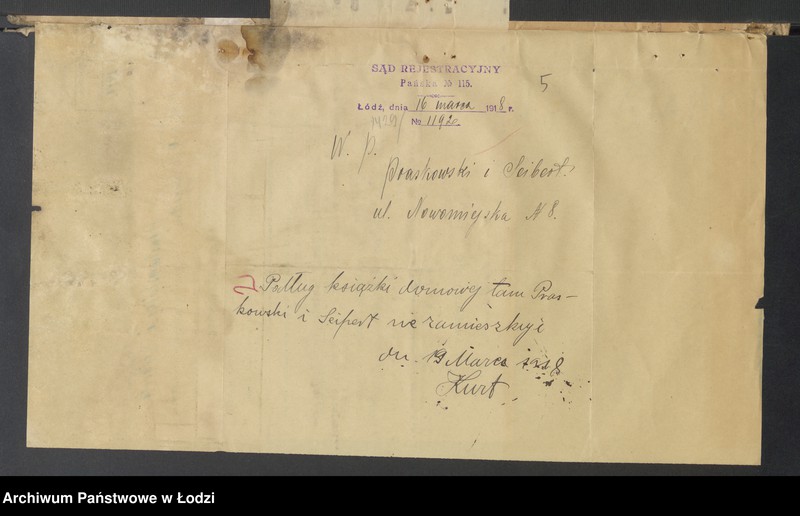 SĄD REJESTRACYJNY
Pańska № 115.
5
Łódź, dnia 16 marca 1918 r.
№ 1192
W. P.
Praskowski i Seibert.
ul. Nowomiejska N 8.
Podług książki domowej tam Pras-
kowski i Seifert nie zamieszkuje
dn. 19 Marca 1918
Kurt
Archiwum Państwowe w Łodzi